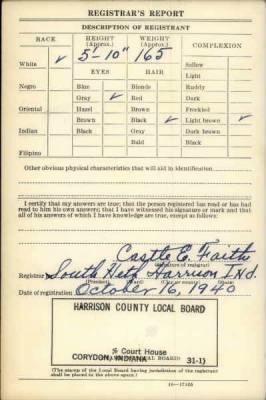 REGISTRAR'S REPORT
DESCRIPTION OF REGISTRANT
RACE HEIGHT (Approx.) WEIGHT (Approx.) COMPLEXION
White ✓ 5'-10" 165 Sallow
EYES HAIR Light
Negro Blue Blonde Ruddy
Gray ✓ Red Dark
Oriental Hazel Brown Freckled
Brown Black ✓ Light brown ✓
Indian Black Gray Dark brown
Bald Black
Filipino
Other obvious physical characteristics that will aid in identification
I certify that my answers are true; that the person registered has read or has had
read to him his own answers; that I have witnessed his signature or mark and that
all of his answers of which I have knowledge are true, except as follows:
Castle E. Faith
Registrar South Heth Harrison IND.
(Precinct) (Ward) (City or county) (State)
Date of registration October 16, 1940
HARRISON COUNTY LOCAL BOARD
% Court House
CORYDON, INDIANA 31-1)
(The stamp of the Local Board having jurisdiction of the registrant
shall be placed in the above space.)